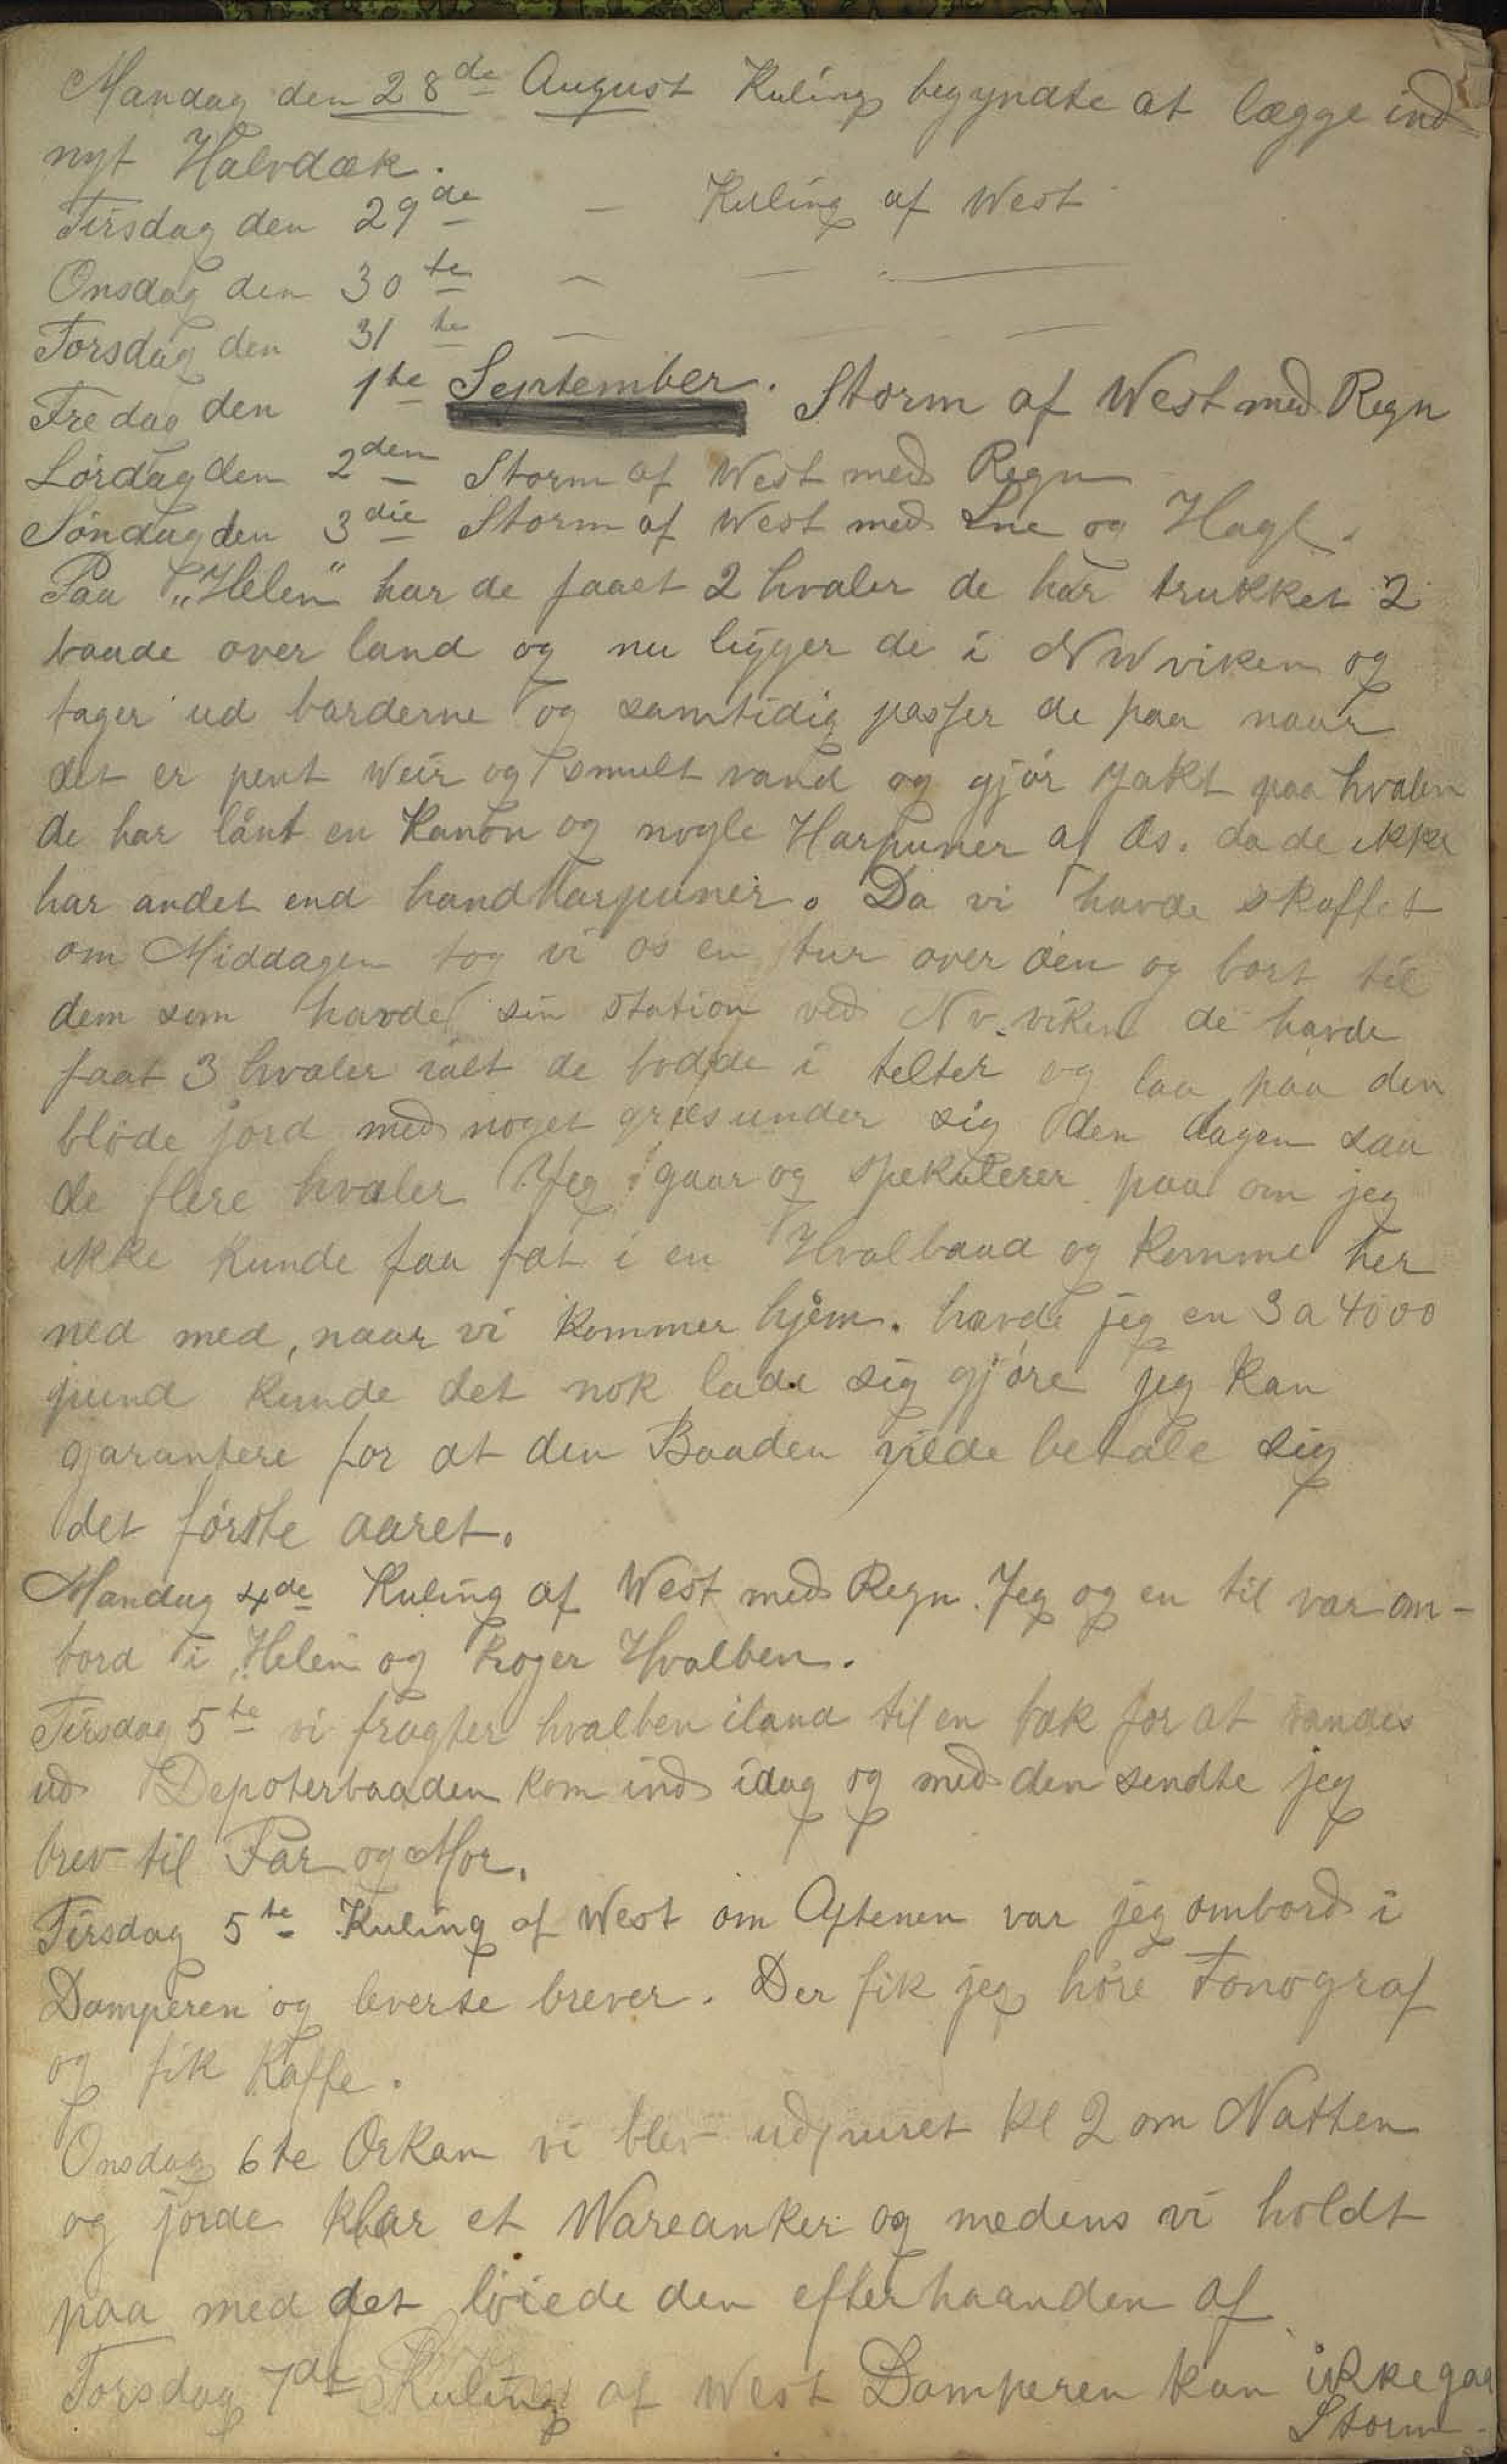 Mandag den 28de August Kuling begyndte at lægge ind
nyt Halvdæk.
Tirsdag den 29de — Kuling af West
Onsdag den 30te — — —
Torsdag den 31te — — —
Fredag den 1te September. Storm af West med Regn
Lördag den 2den Storm af West med Regn
Söndag den 3die Storm af West med Sne og Hagl.
Paa "Helen" har de faaet 2 hvaler de har trukket 2
baade over land og nu ligger de i NW viken og
tager ud barderne og samtidig passer de paa naar
det er pent Weir og smult vand og gjör Jakt paa hvalen
de har lånt en Kanon og nogle Harpuner af Os. da de ikke
har andet end handHarpuner. Da vi havde skaffet
om Middagen tog vi os en tur over öen og bort til
dem som havde sin Station ved Nv. viken de havde
faat 3 hvaler ialt de bodde i telter og laa paa den
blöde jord med noget græs under sig den dagen saa
de flere hvaler Jeg gaar og spekulerer paa om jeg
ikke kunde faa fat i en Hvalbaad og komme her
ned med, naar vi kommer hjem. havde jeg en 3 a 4000
pund kunde det nok lade sig gjöre jeg kan
garantere for at den Baaden vilde betale sig
det förste aaret.
Mandag 4de Kuling af West med Regn. Jeg og en til var om-
bord i "Helen og Koger Hvalben.
Tirsdag 5te vi fragter hvalben iland til en bæk for at vandes
ud Depoterbaaden kom ind idag og med den sendte jeg
brev til Far og Mor.
Tirsdag 5te Kuling af West om Aftenen var jeg ombord i
Damperen og leverte brever. Der fik jeg höre Fonograf
og fik Kaffe.
Onsdag 6te Orkan vi blev udpurret Kl 2 om Natten
og jorde klar et Wareanker og medens vi holdt
paa med det löiede den efterhaanden af
Torsdag 7de Kuling af West Damperen kan ikke gaa
Storm.